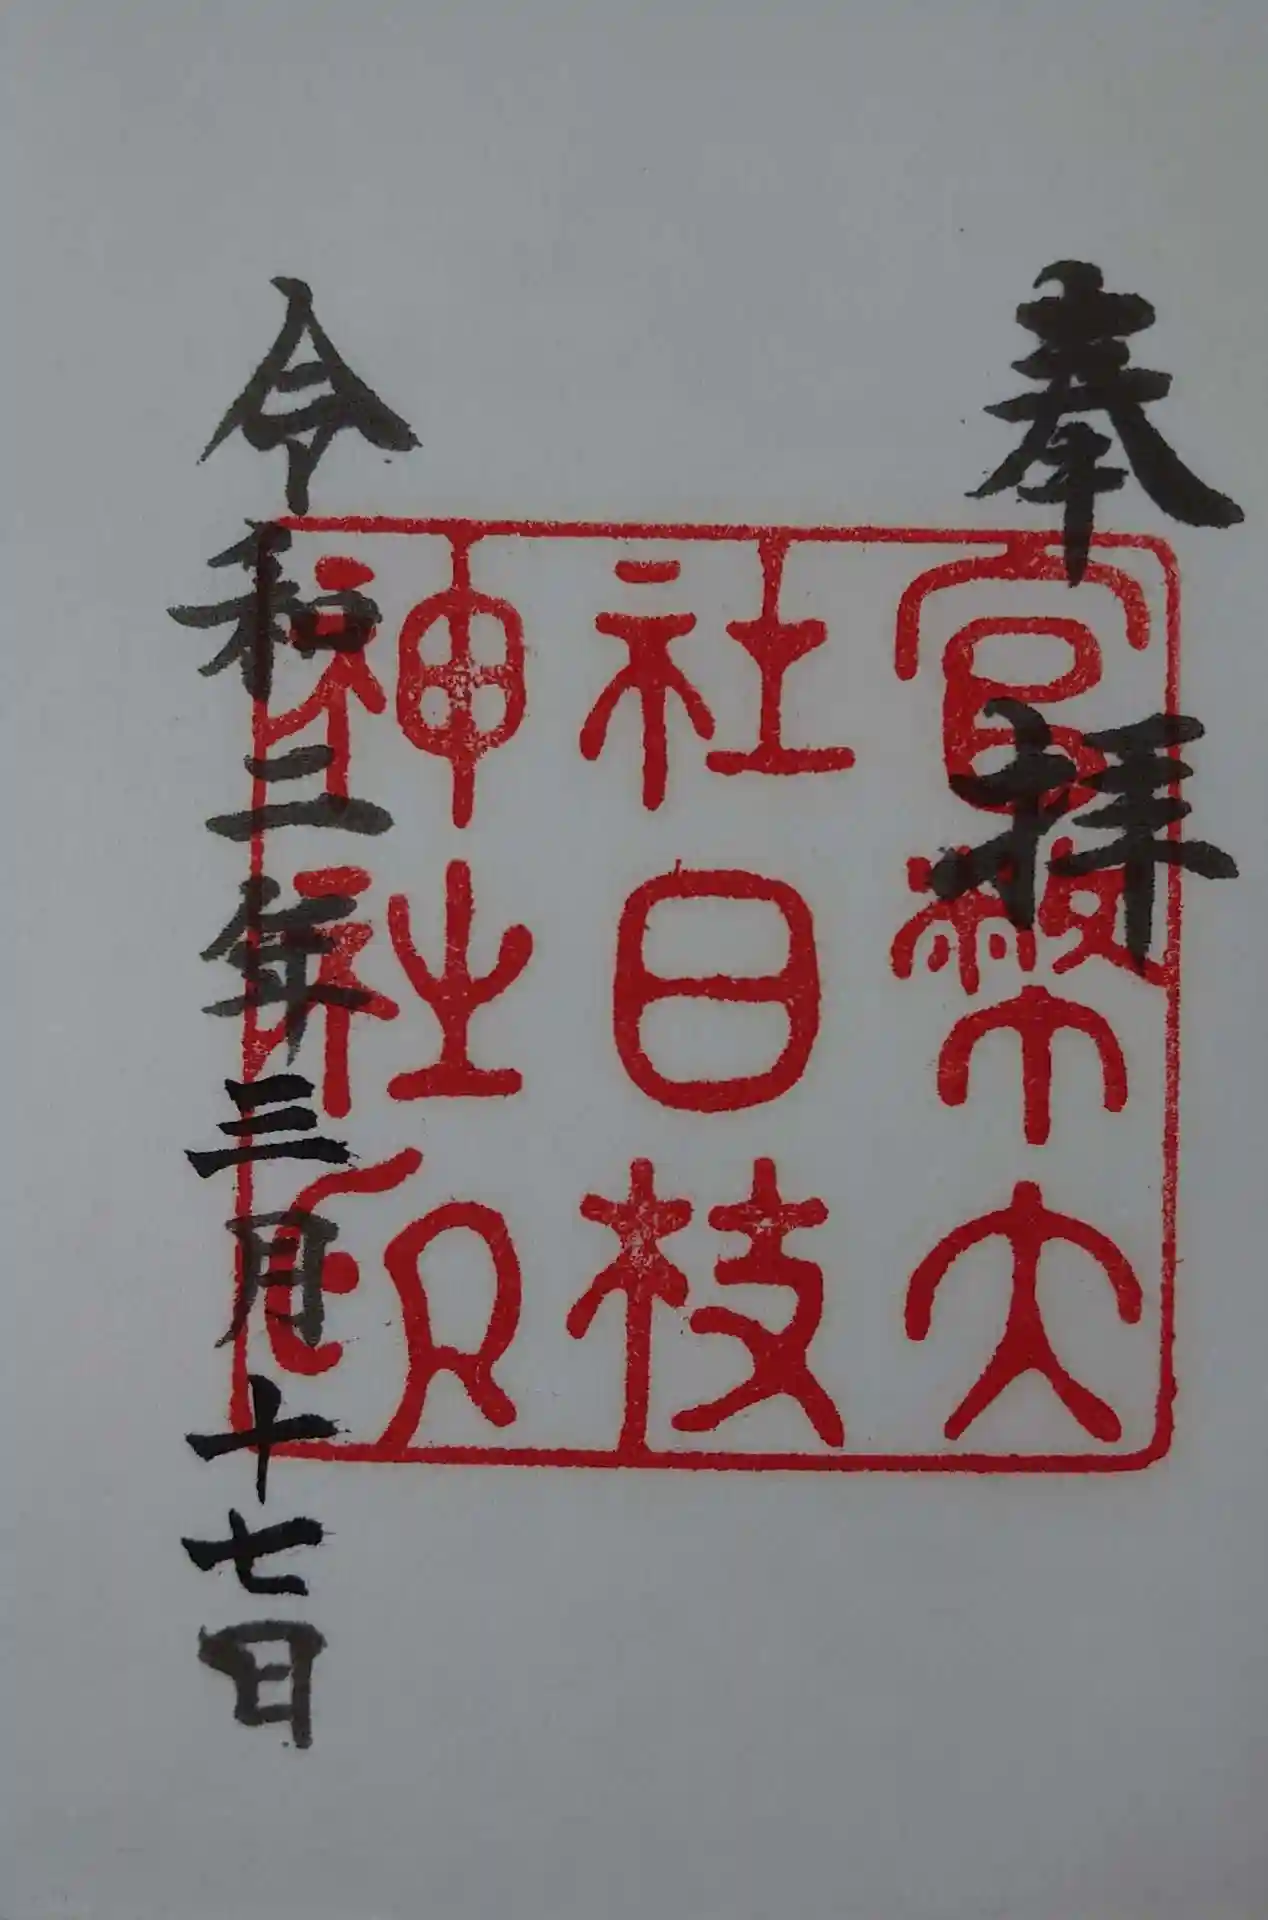 奉拝
官幣大
社日枝
神社印
令和二年三月十七日